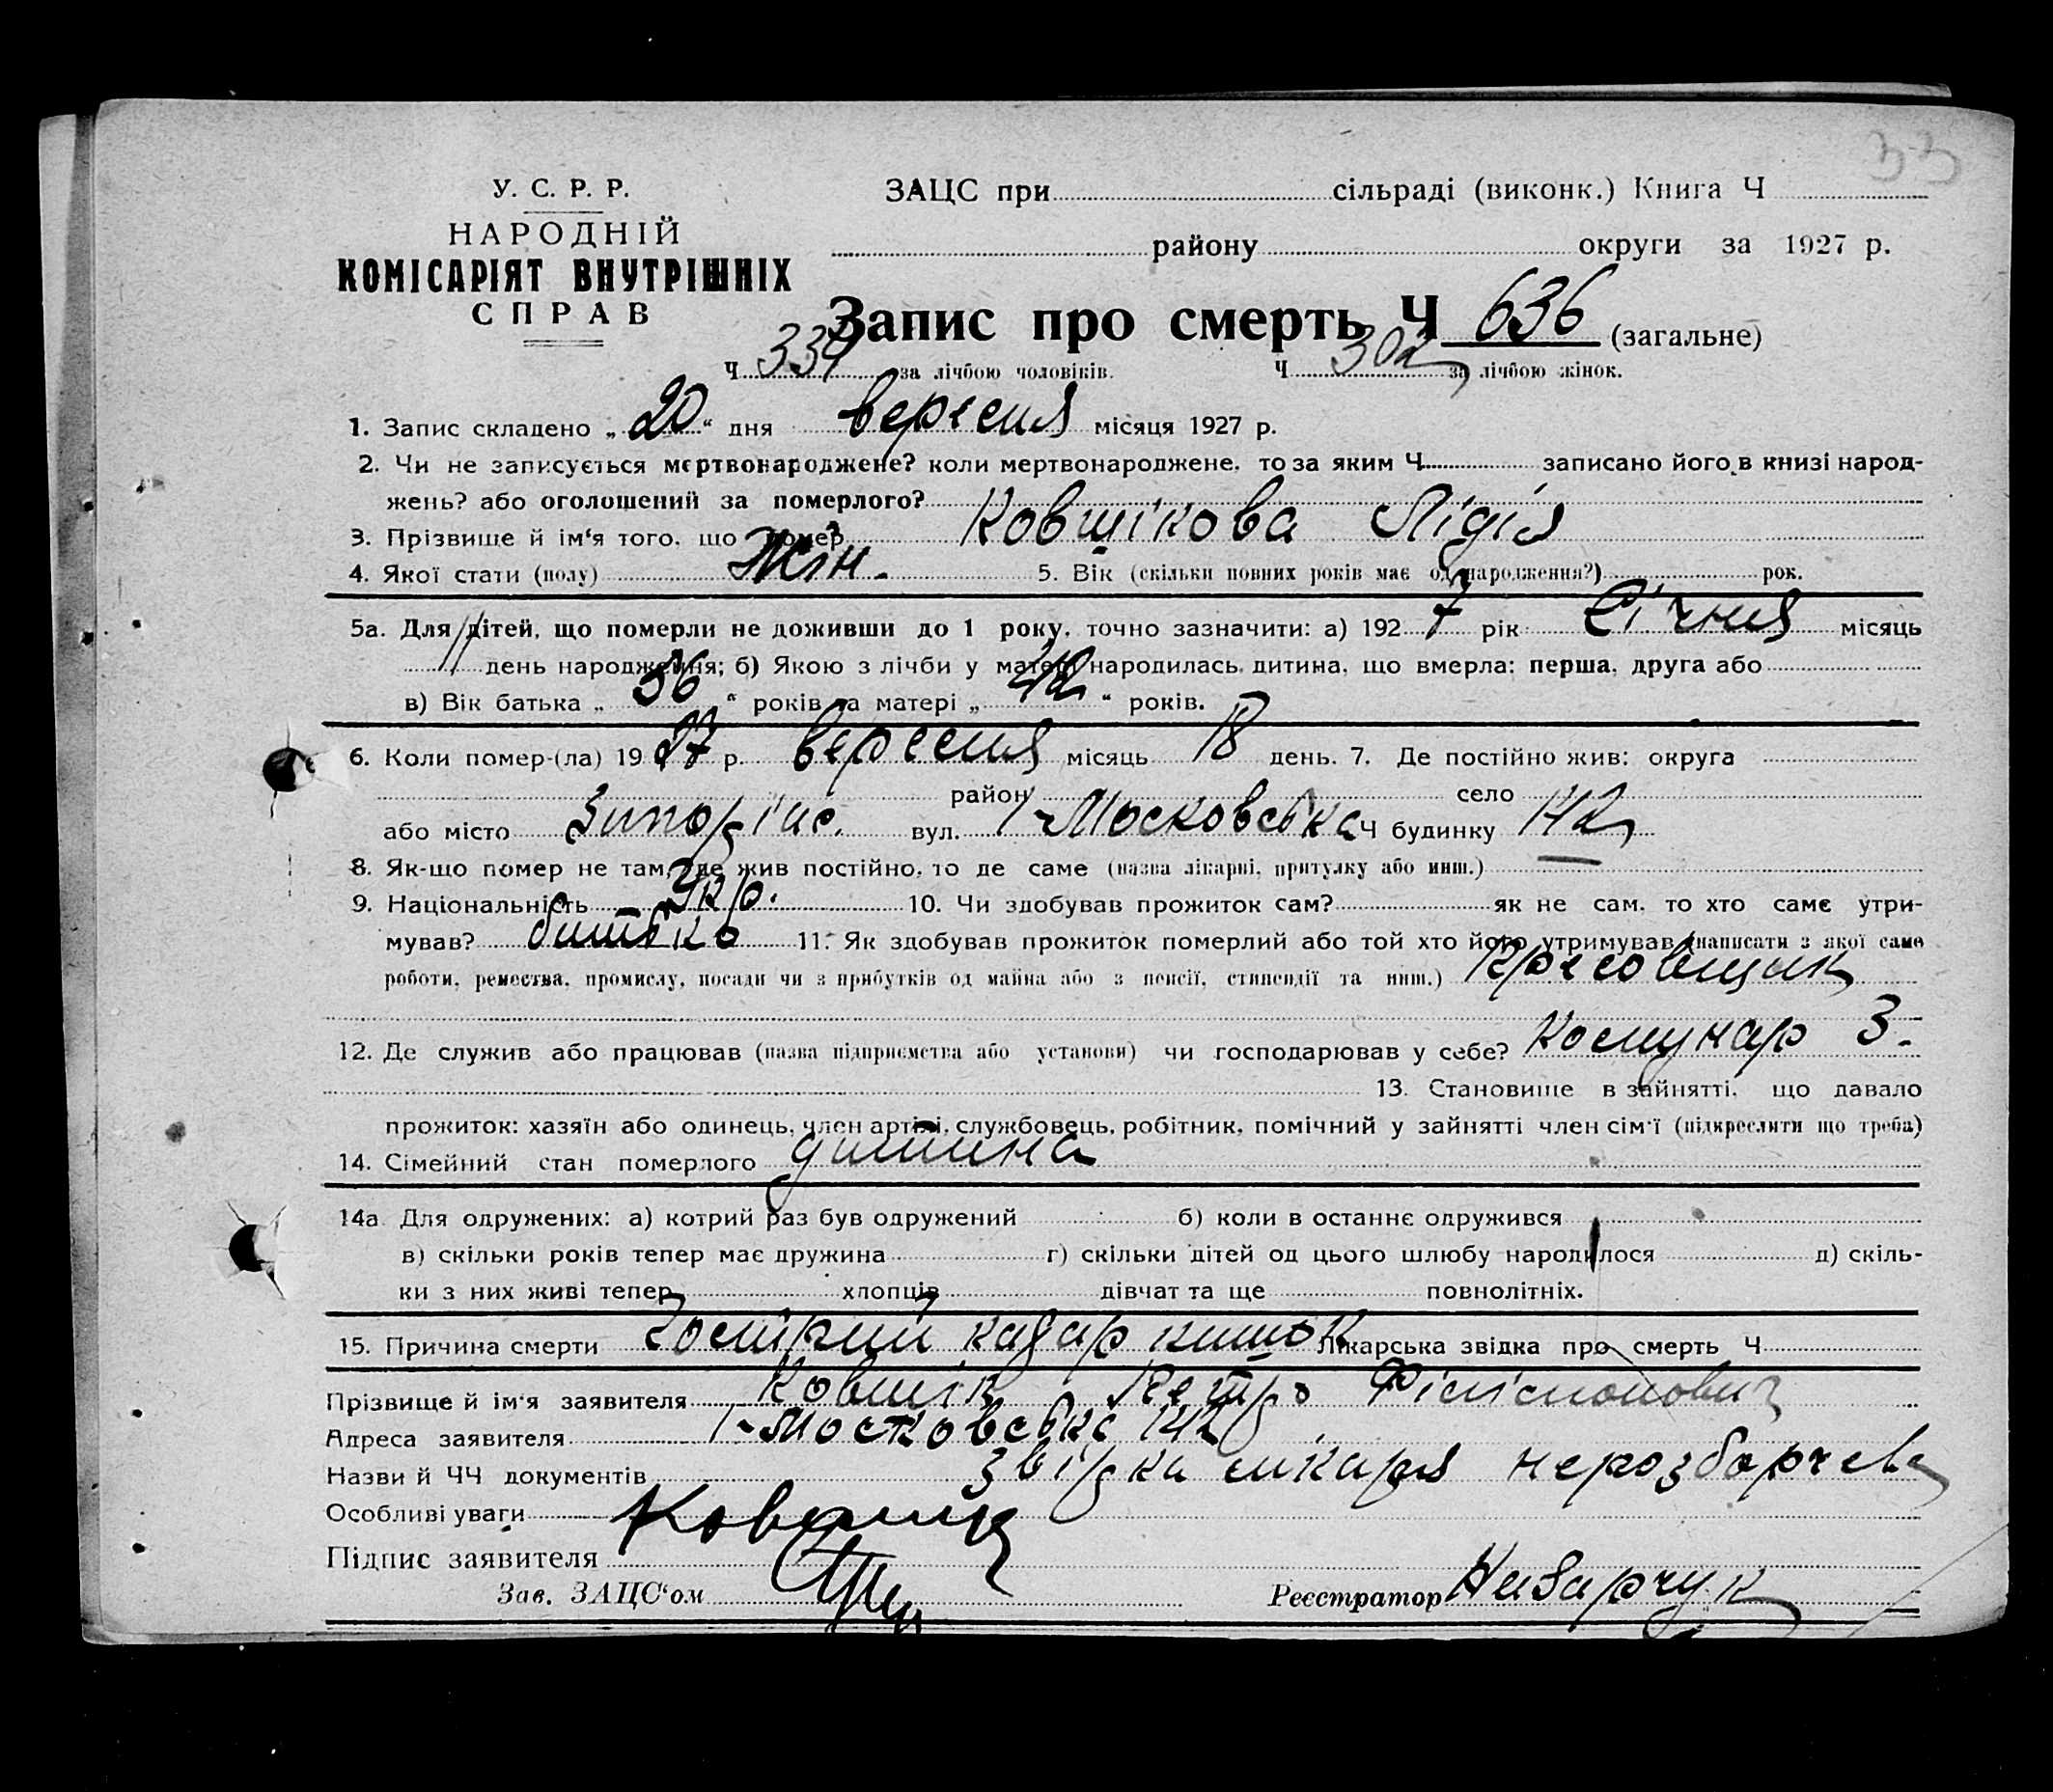 33
У. С. Р. Р.
НАРОДНІЙ
КОМІСАРІЯТ ВНУТРІШНІХ
СПРАВ
ЗАЦС при сільраді (виконк.) Книга Ч
району округи за 1927 р.
Запис про смерть Ч 636 (загальне)
Ч 334 за лічбою чоловіків. Ч 302 за лічбою жінок.
1. Запис складено „20“ дня вересня місяця 1927 р.
2. Чи не записується мертвонароджене? коли мертвонароджене, то за яким Ч записано його в книзі народ-
жень? або оголошений за померлого?
3. Прізвище й ім'я того, що помер Ковшікова Лідія
4. Якої стати (полу) Жін. 5. Вік (скільки повних років має од народження?) рок.
5а. Для дітей, що померли не доживши до 1 року, точно зазначити: а) 1927 рік Січня місяць
11 день народження; б) Якою з лічби у матері народилась дитина, що вмерла: перша, друга або
в) Вік батька „36“ років та матері „ “ років.
6. Коли помер-(ла) 1927 р. вересня місяць 18 день. 7. Де постійно жив: округа
район село
або місто Запоріжс. вул. 1-Московська Ч будинку 142
8. Як-що помер не там, де жив постійно, то де саме (назва лікарні, притулку або инш.)
9. Національність Укр. 10. Чи здобував прожиток сам? як не сам, то хто саме утри-
мував? батько 11. Як здобував прожиток померлий або той хто його утримував (написати з якої саме
роботи, ремества, промислу, посади чи з прибутків од майна або з пенсії, стипендії та инш.)
12. Де служив або працював (назва підприємства або установи) чи господарював у себе? Комунар З.
13. Становище в зайнятті, що давало
прожиток: хазяїн або одинець, член артілі, службовець, робітник, помічний у зайнятті член сім'ї (підкреслити що треба)
14. Сімейний стан померлого дитина
14а Для одружених: а) котрий раз був одружений б) коли в останнє одружився
в) скільки років тепер має дружина г) скільки дітей од цього шлюбу народилося д) скіль-
ки з них живі тепер хлопців дівчат та ще повнолітніх.
15. Причина смерти Гострий катар кишок Лікарська звідка про смерть Ч
Прізвище й ім'я заявителя Ковшік Петро
Адреса заявителя 1-Московська 142
Назви й ЧЧ документів звідка лікаря нерозборчева
Особливі уваги
Підпис заявителя Ковшик
Зав. ЗАЦС'ом Реєстратор Назарчук